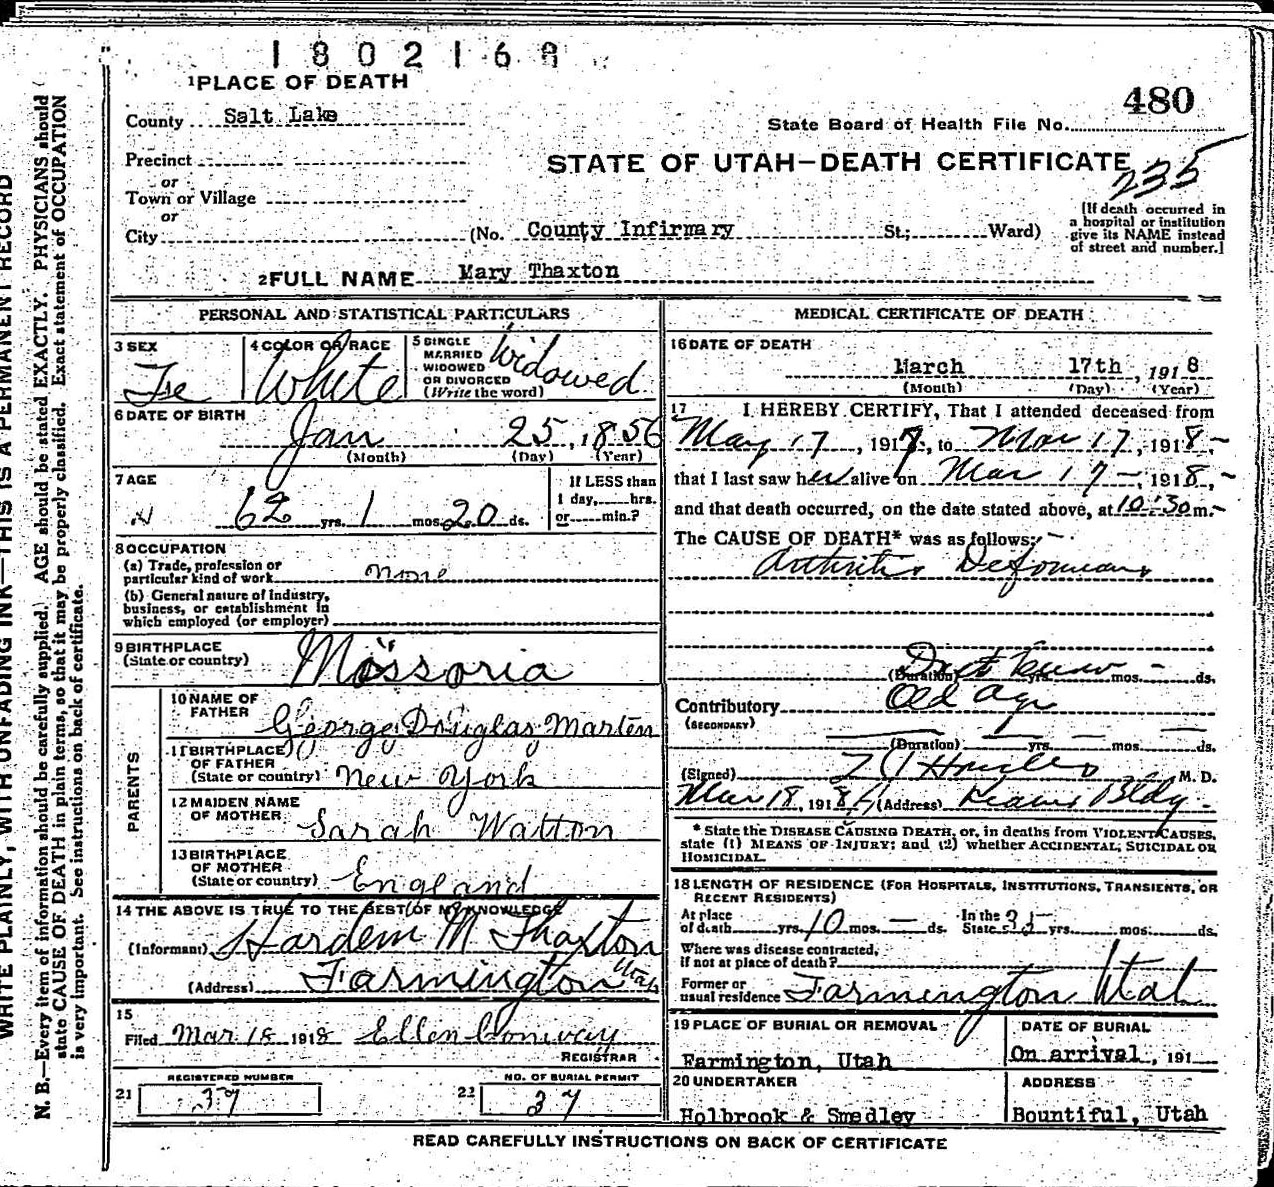 1802168
1 PLACE OF DEATH
480
County Salt Lake
State Board of Health File No.
Precinct
STATE OF UTAH—DEATH CERTIFICATE
235
or
Town or Village
or
City (No. County Infirmary St.; Ward)
[If death occurred in
a hospital or institution
give its NAME instead
of street and number.]
2 FULL NAME Mary Thaxton
PERSONAL AND STATISTICAL PARTICULARS
3 SEX Fe
4 COLOR OR RACE White
5 SINGLE
MARRIED
WIDOWED
OR DIVORCED
(Write the word)
Widowed
6 DATE OF BIRTH
Jan 25, 1856
(Month) (Day) (Year)
7 AGE
62 yrs. 1 mos. 20 ds.
If LESS than
1 day, hrs.
or min.?
8 OCCUPATION
(a) Trade, profession or
particular kind of work none
(b) General nature of industry,
business, or establishment in
which employed (or employer)
9 BIRTHPLACE
(State or country) Mossoria
PARENTS
10 NAME OF
FATHER George Douglas Marten
11 BIRTHPLACE
OF FATHER
(State or country) New York
12 MAIDEN NAME
OF MOTHER Sarah Watton
13 BIRTHPLACE
OF MOTHER
(State or country) England
14 THE ABOVE IS TRUE TO THE BEST OF MY KNOWLEDGE
(Informant) Hardem M Thaxton
(Address) Farmington Utah
15
Filed Mar 18 1918 Ellen Conway
REGISTRAR
REGISTERED NUMBER
21 37
NO. OF BURIAL PERMIT
22 37
MEDICAL CERTIFICATE OF DEATH
16 DATE OF DEATH
March 17th, 1918
(Month) (Day) (Year)
17 I HEREBY CERTIFY, That I attended deceased from
May 17, 1917, to Mar 17, 1918,
that I last saw her alive on Mar 17, 1918,
and that death occurred, on the date stated above, at 10:30 m.
The CAUSE OF DEATH* was as follows:
Arthritis Deformans
Dont Know
(Duration) yrs. mos. ds.
Contributory Old Age
(SECONDARY)
(Duration) yrs. mos. ds.
(Signed) M. D.
Mar 18, 1918 (Address) Kearns Bldg.
* State the DISEASE CAUSING DEATH, or, in deaths from VIOLENT CAUSES,
state (1) MEANS OF INJURY; and (2) whether ACCIDENTAL, SUICIDAL OR
HOMICIDAL.
18 LENGTH OF RESIDENCE (FOR HOSPITALS, INSTITUTIONS, TRANSIENTS, OR
RECENT RESIDENTS)
At place
of death yrs. 10 mos. ds.
In the
State 35 yrs. mos. ds.
Where was disease contracted,
if not at place of death?
Former or
usual residence Farmington Utah
19 PLACE OF BURIAL OR REMOVAL
Farmington, Utah
DATE OF BURIAL
On arrival, 191
20 UNDERTAKER
Holbrook & Smedley
ADDRESS
Bountiful, Utah
READ CAREFULLY INSTRUCTIONS ON BACK OF CERTIFICATE
WRITE PLAINLY, WITH UNFADING INK—THIS IS A PERMANENT RECORD
N. B.—Every item of information should be carefully supplied. AGE should be stated EXACTLY. PHYSICIANS should
state CAUSE OF DEATH in plain terms, so that it may be properly classified. Exact statement of OCCUPATION
is very important. See instructions on back of certificate.